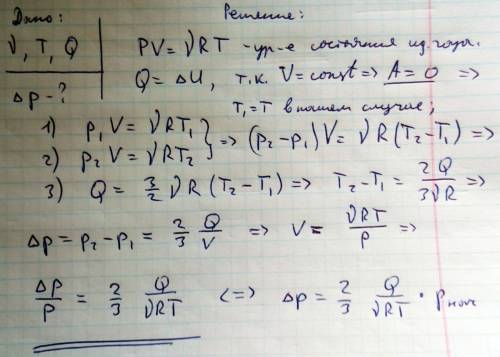 Дано: Решение:
ν, T, Q PV = νRT - ур-е состояния ид. газа.
Δp - ? Q = ΔU, т.к. V = const => A = 0 =>
T₁ = T в нашем случае;
1) p₁V = νRT₁ } => (p₂ - p₁)V = νR(T₂ - T₁) =>
2) p₂V = νRT₂
3) Q = 3/2 νR(T₂ - T₁) => T₂ - T₁ = 2Q/3νR =>
Δp = p₂ - p₁ = 2/3 Q/V => V = νRT/P =>
Δp/P = 2/3 Q/νRT <=> Δp = 2/3 Q/νRT · Pнач